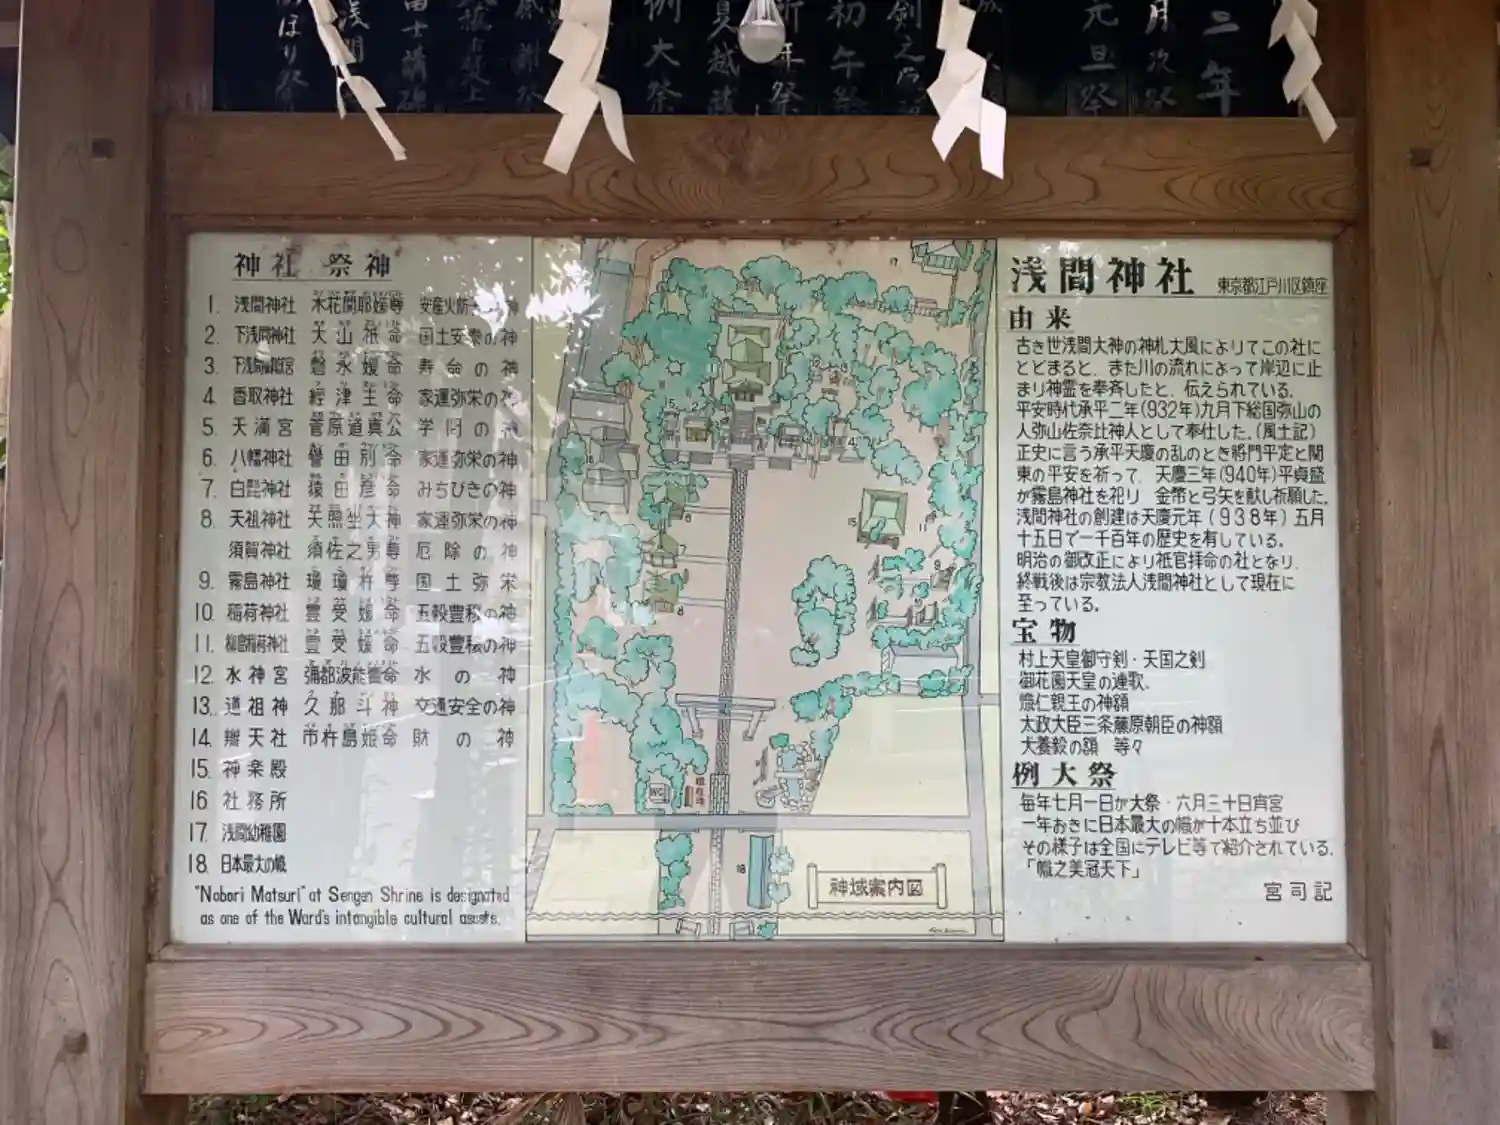 二年
月次祭
元旦祭
初午祭
例大祭
神社 祭神
1. 浅間神社 木花開耶姫尊 安産火防 神
2. 下浅間神社 大山祇命 国土安泰の神
3. 磐永姫命 寿命の神
4. 香取神社 経津主命 家運弥栄の神
5. 天満宮 菅原道真公 学問の神
6. 八幡神社 誉田別命 家運弥栄の神
7. 白髭神社 猿田彦命 みちびきの神
8. 天祖神社 天照坐大神 家運弥栄の神
須賀神社 須佐之男尊 厄除の神
9. 霧島神社 瓊瓊杵尊 国土弥栄
10. 稲荷神社 豊受姫命 五穀豊穣の神
11. 豊受姫命 五穀豊穣の神
12. 水神宮 彌都波能賣命 水の神
13. 道祖神 久那斗神 交通安全の神
14. 辨天社 市杵島姫命 財の神
15. 神楽殿
16. 社務所
17. 浅間幼稚園
18. 日本最大の幟
"Nobori Matsuri" at Sengen Shrine is designated
as one of the Ward's intangible cultural assets.
WC
現在地
神域案内図
浅間神社 東京都江戸川区鎮座
由来
古き世浅間大神の神札大風によりてこの社に
とどまると、また川の流れによって岸辺に止
まり神霊を奉斉したと、伝えられている。
平安時代承平二年(932年)九月下総国弥山の
人弥山佐奈比神人として奉仕した。(風土記)
正史に言う承平天慶の乱のとき将門平定と関
東の平安を祈って、天慶三年(940年)平貞盛
が霧島神社を祀り 金幣と弓矢を献し祈願した。
浅間神社の創建は天慶元年(938年)五月
十五日で一千百年の歴史を有している。
明治の御改正により祇官拝命の社となり、
終戦後は宗教法人浅間神社として現在に
至っている。
宝物
村上天皇御守剣・天国之剣
御花園天皇の連歌、
熾仁親王の神額
太政大臣三条藤原朝臣の神額
犬養毅の額 等々
例大祭
毎年七月一日が大祭・六月三十日宵宮
一年おきに日本最大の幟が十本立ち並び
その様子は全国にテレビ等で紹介されている。
「幟之美冠天下」
宮司記